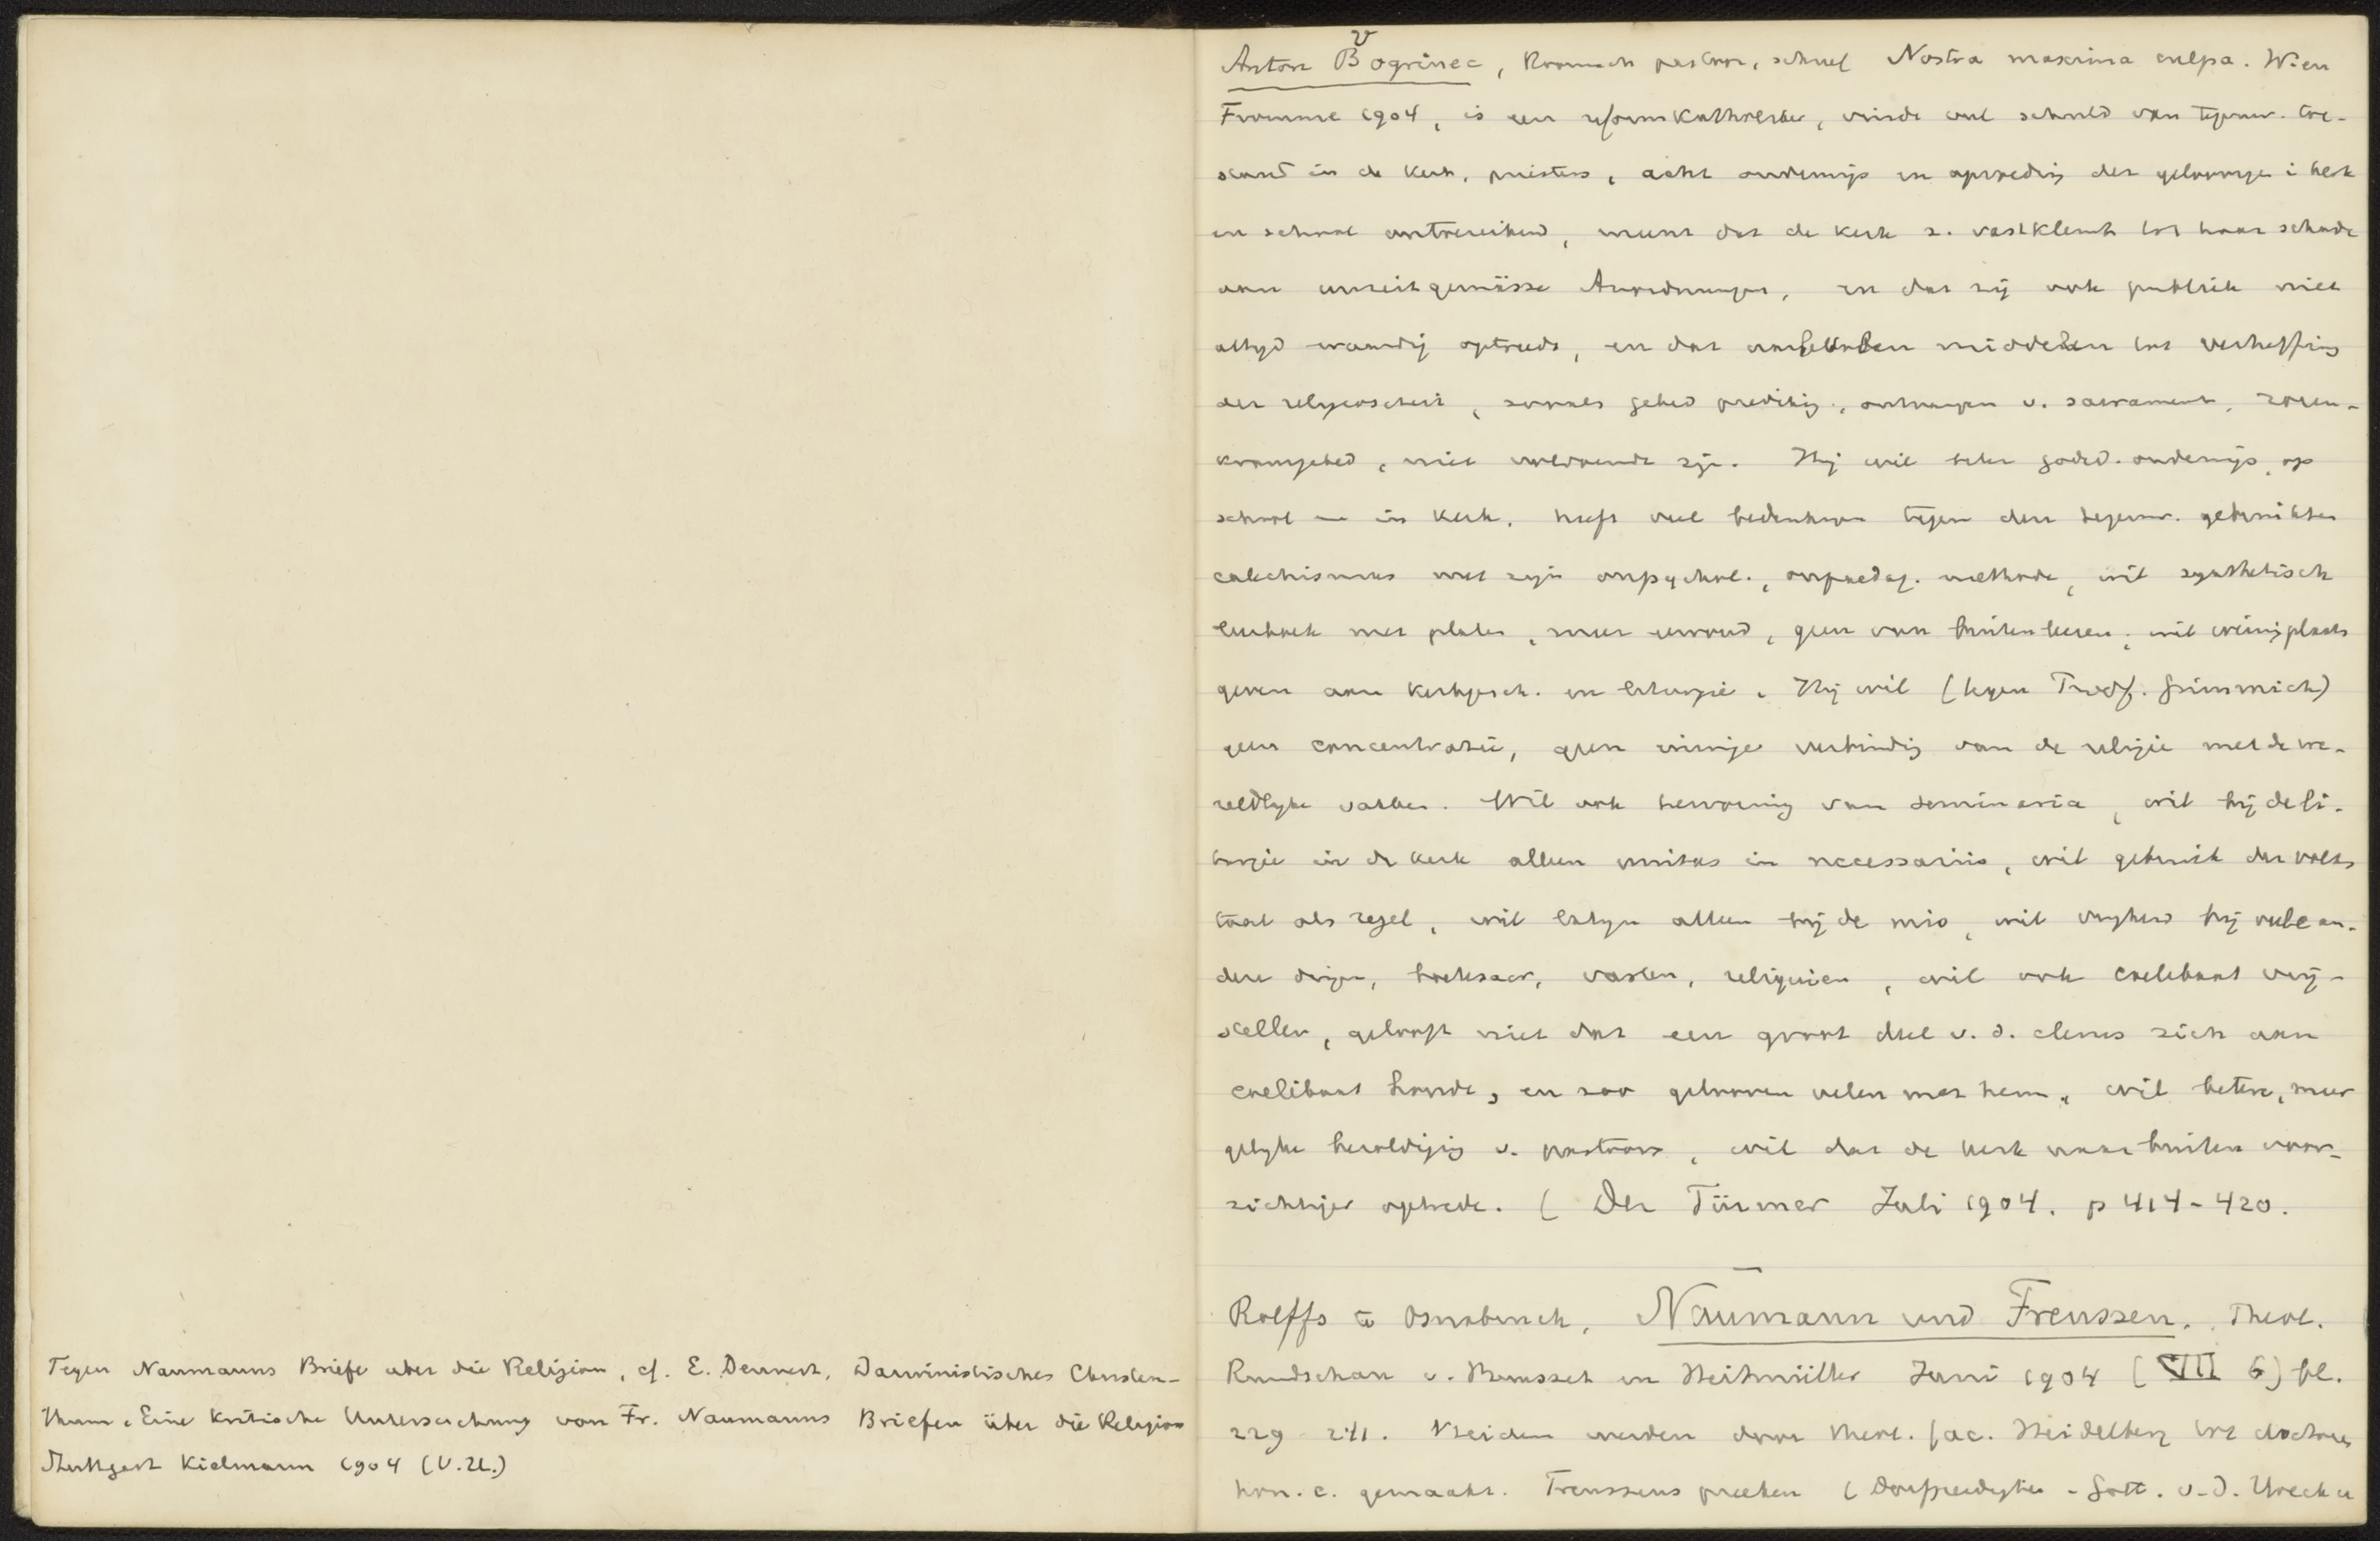 Tegen Naumanns Briefe uber die Religion, cf. E. Dennert, Darwinistisches Christen-
thum. Eine kritische Untersuchung von Fr. Naumanns Briefen über die Religion
Stuttgart Kielmann 1904 (V.U.)
Anton Vogrinec, Roomsch pastoor, schreef Nostra maxima culpa. Wien
Fromme 1904, is een reformkatholiek, vindt veel schuld van tegenw. toe-
stand in de kerk, priesters, acht onderwijs en opvoeding der geloovigen i kerk
en school ontoereikend, meent dat de kerk z. vastklemt tot haar schade
aan unzeitgemässe Anordnungen, en dat zij ook publiek niet
altyd waardig optreedt, en dat middelen tot verheffing
der religieositeit, zooals gebed prediking, ontvangen v. sacrament, rozen-
kransgebed, niet voldoende zijn. Hij wil beter godsd. onderwijs, op
school en in kerk, heeft veel bedenkingen tegen den tegenw. gebruikten
catechismus met zijn onpsychol., onpaedag. methode, wil synthetisch
leerboek met platen, meer eenvoud, geen van buiten leeren, wil weinig plaats
geven aan kerkgesch. en liturgie. Hij wil (tegen Prof. Gimmich)
geen concentratie, geen innige verbinding van de religie met de we-
reldlyke vakken. Wil ook hervorming van seminaria, wil bij de li-
turgie in de kerk alleen unitas in necessariis, wil gebruik der volks
taal als regel, wil latyn alleen bij de mis, wil vryheid bij vele an-
dere dingen, vasten, reliquien, wil ook coelibaat vrij-
stellen, gelooft niet dat een groot deel v. d. clerus zich aan
coelibaat houdt, en zoo gelooven velen met hem, wil betere, meer
gelyke bezoldiging v. pastoors, wil dat de kerk naar buiten voor-
zichtiger optrede. (Der Türmer Juli 1904. p 414-420.
Rolffs te Osnabruck, Naumann und Frenssen. Theol.
Rundschau v. Bousset en Heitmüller Juni 1904 (VII 6) bl.
229 241. Beiden werden door theol. fac. Heidelberg tot doctores
hon. c. gemaakt. Frenssens preeken (Dorfpredigten - Gött. v. d. Hoeck u